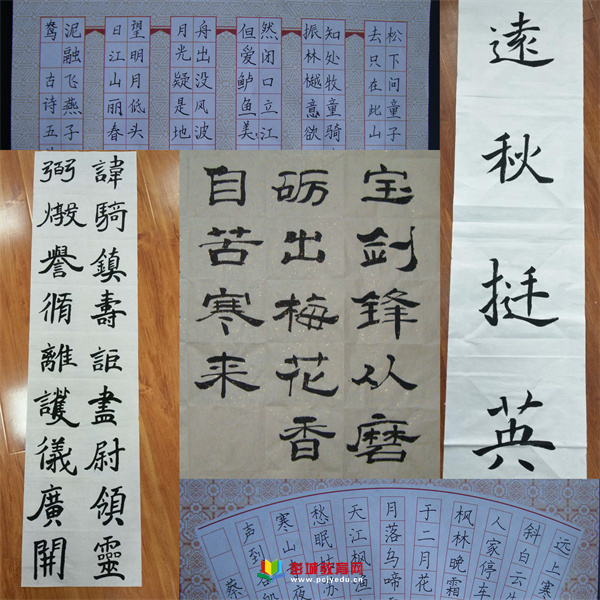 松下问童子
去只在此山
知处牧童骑
振林樾意欲
然闭口立江
但爱鲈鱼美
舟出没风波
月光疑是地
望明月低头
日江山丽春
泥融飞燕子
鸳 古诗五
遠秋挺英
宝剑锋从磨
砺出梅花香
自苦寒来
諱騎鎮壽詎盡尉領靈
弼燬譽循離護儀廣開
远上寒
斜白云生
人家停车
枫林晚霜
于二月花
月落乌啼
天江枫渔
愁眠姑苏
寒山 夜
声到 船
彭城教育网
www.pcjyedu.cn